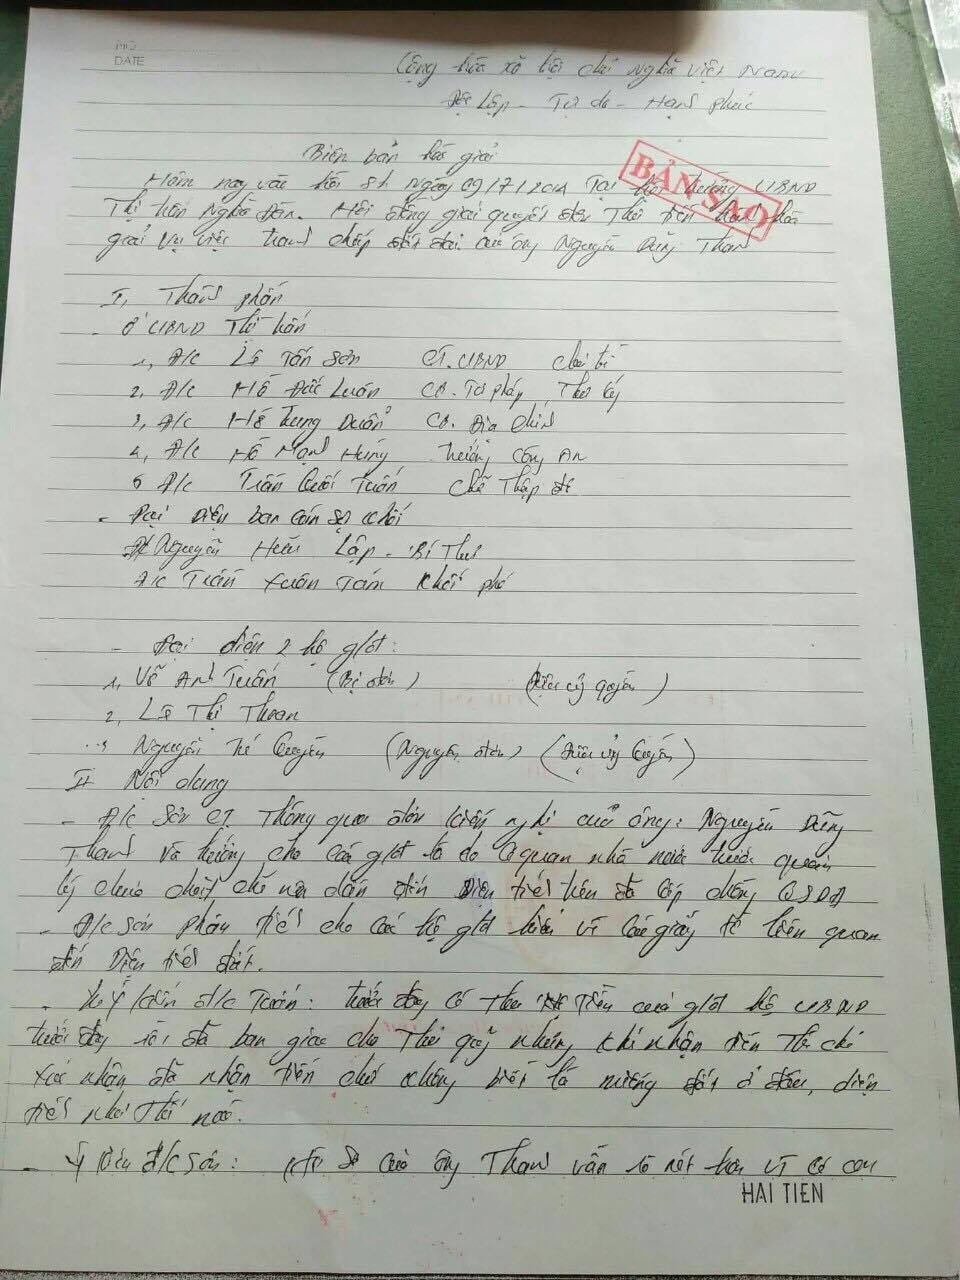 NO
DATE
Cộng hòa xã hội chủ nghĩa việt Nam
Độc Lập - Tự do - Hạnh phúc
Biên bản hòa giải
BẢN SAO
Hôm nay vào hồi 8h ngày 09/7/2014 Tại hội trường UBND
Thị trấn Nghĩa Đàn. Hội đồng giải quyết đơn Thư tiến hành hòa
giải vụ việc tranh chấp đất đai của ông Nguyễn Dũng Thanh
I, Thành phần
- Ở UBND Thị trấn
1, Đ/c Lê Tấn Sơn CT. UBND chủ trì
2, Đ/c Hồ Đức Luân CB. Tư pháp, Thư ký
3, Đ/c Hồ Trung Duẩn CB. Địa chính
4, Đ/c Hồ Mạnh Hùng Trưởng Công An
5 Đ/c Trần Quốc Tuấn chữ Thập đỏ
- Đại Diện ban cán sự khối
Đ/c Nguyễn Hữu Lập - Bí Thư
Đ/c Trần Xuân Tám khối phó
- Đại diện 2 hộ g/đ:
1, Võ Anh Tuấn (Bị đơn) ( ủy quyền)
2, Lê Thị Thoan
3 Nguyễn Thế Quyền (Nguyên đơn) ( ủy Quyền)
II Nội dung
- Đ/c Sơn CT Thông qua đơn kiến nghị của ông: Nguyễn Dũng
Thanh và hướng cho các g/đ là do cơ quan nhà nước trước quản
lý chưa chặt chẽ nên dẫn đến Diện tích trên đã cấp chồng QSDĐ
- Đ/c Sơn phân tích cho các hộ g/đ hiểu về các giấy tờ liên quan
đến Diện tích đất.
- Ý kiến đ/c Tuấn: trước đây có thu Tiền của g/đ hộ UBND
trước đây rồi đã bàn giao cho Thủ quỹ nhưng khi nhận tiền Thì chỉ
xác nhận đã nhận tiền chứ không biết là miếng đất ở đâu, diện
tích như Thế nào.
- Ý kiến đ/c Sơn: Hồ sơ của ông Thanh vẫn rõ nét hơn vì có con
HAI TIEN